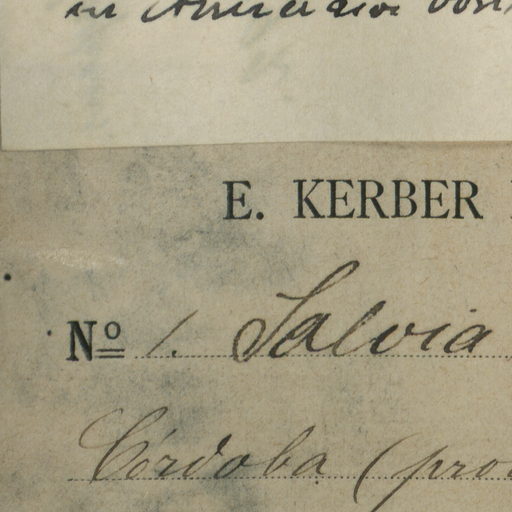 in
E. KERBER
Nº 1. Salvia
Córdoba (pro